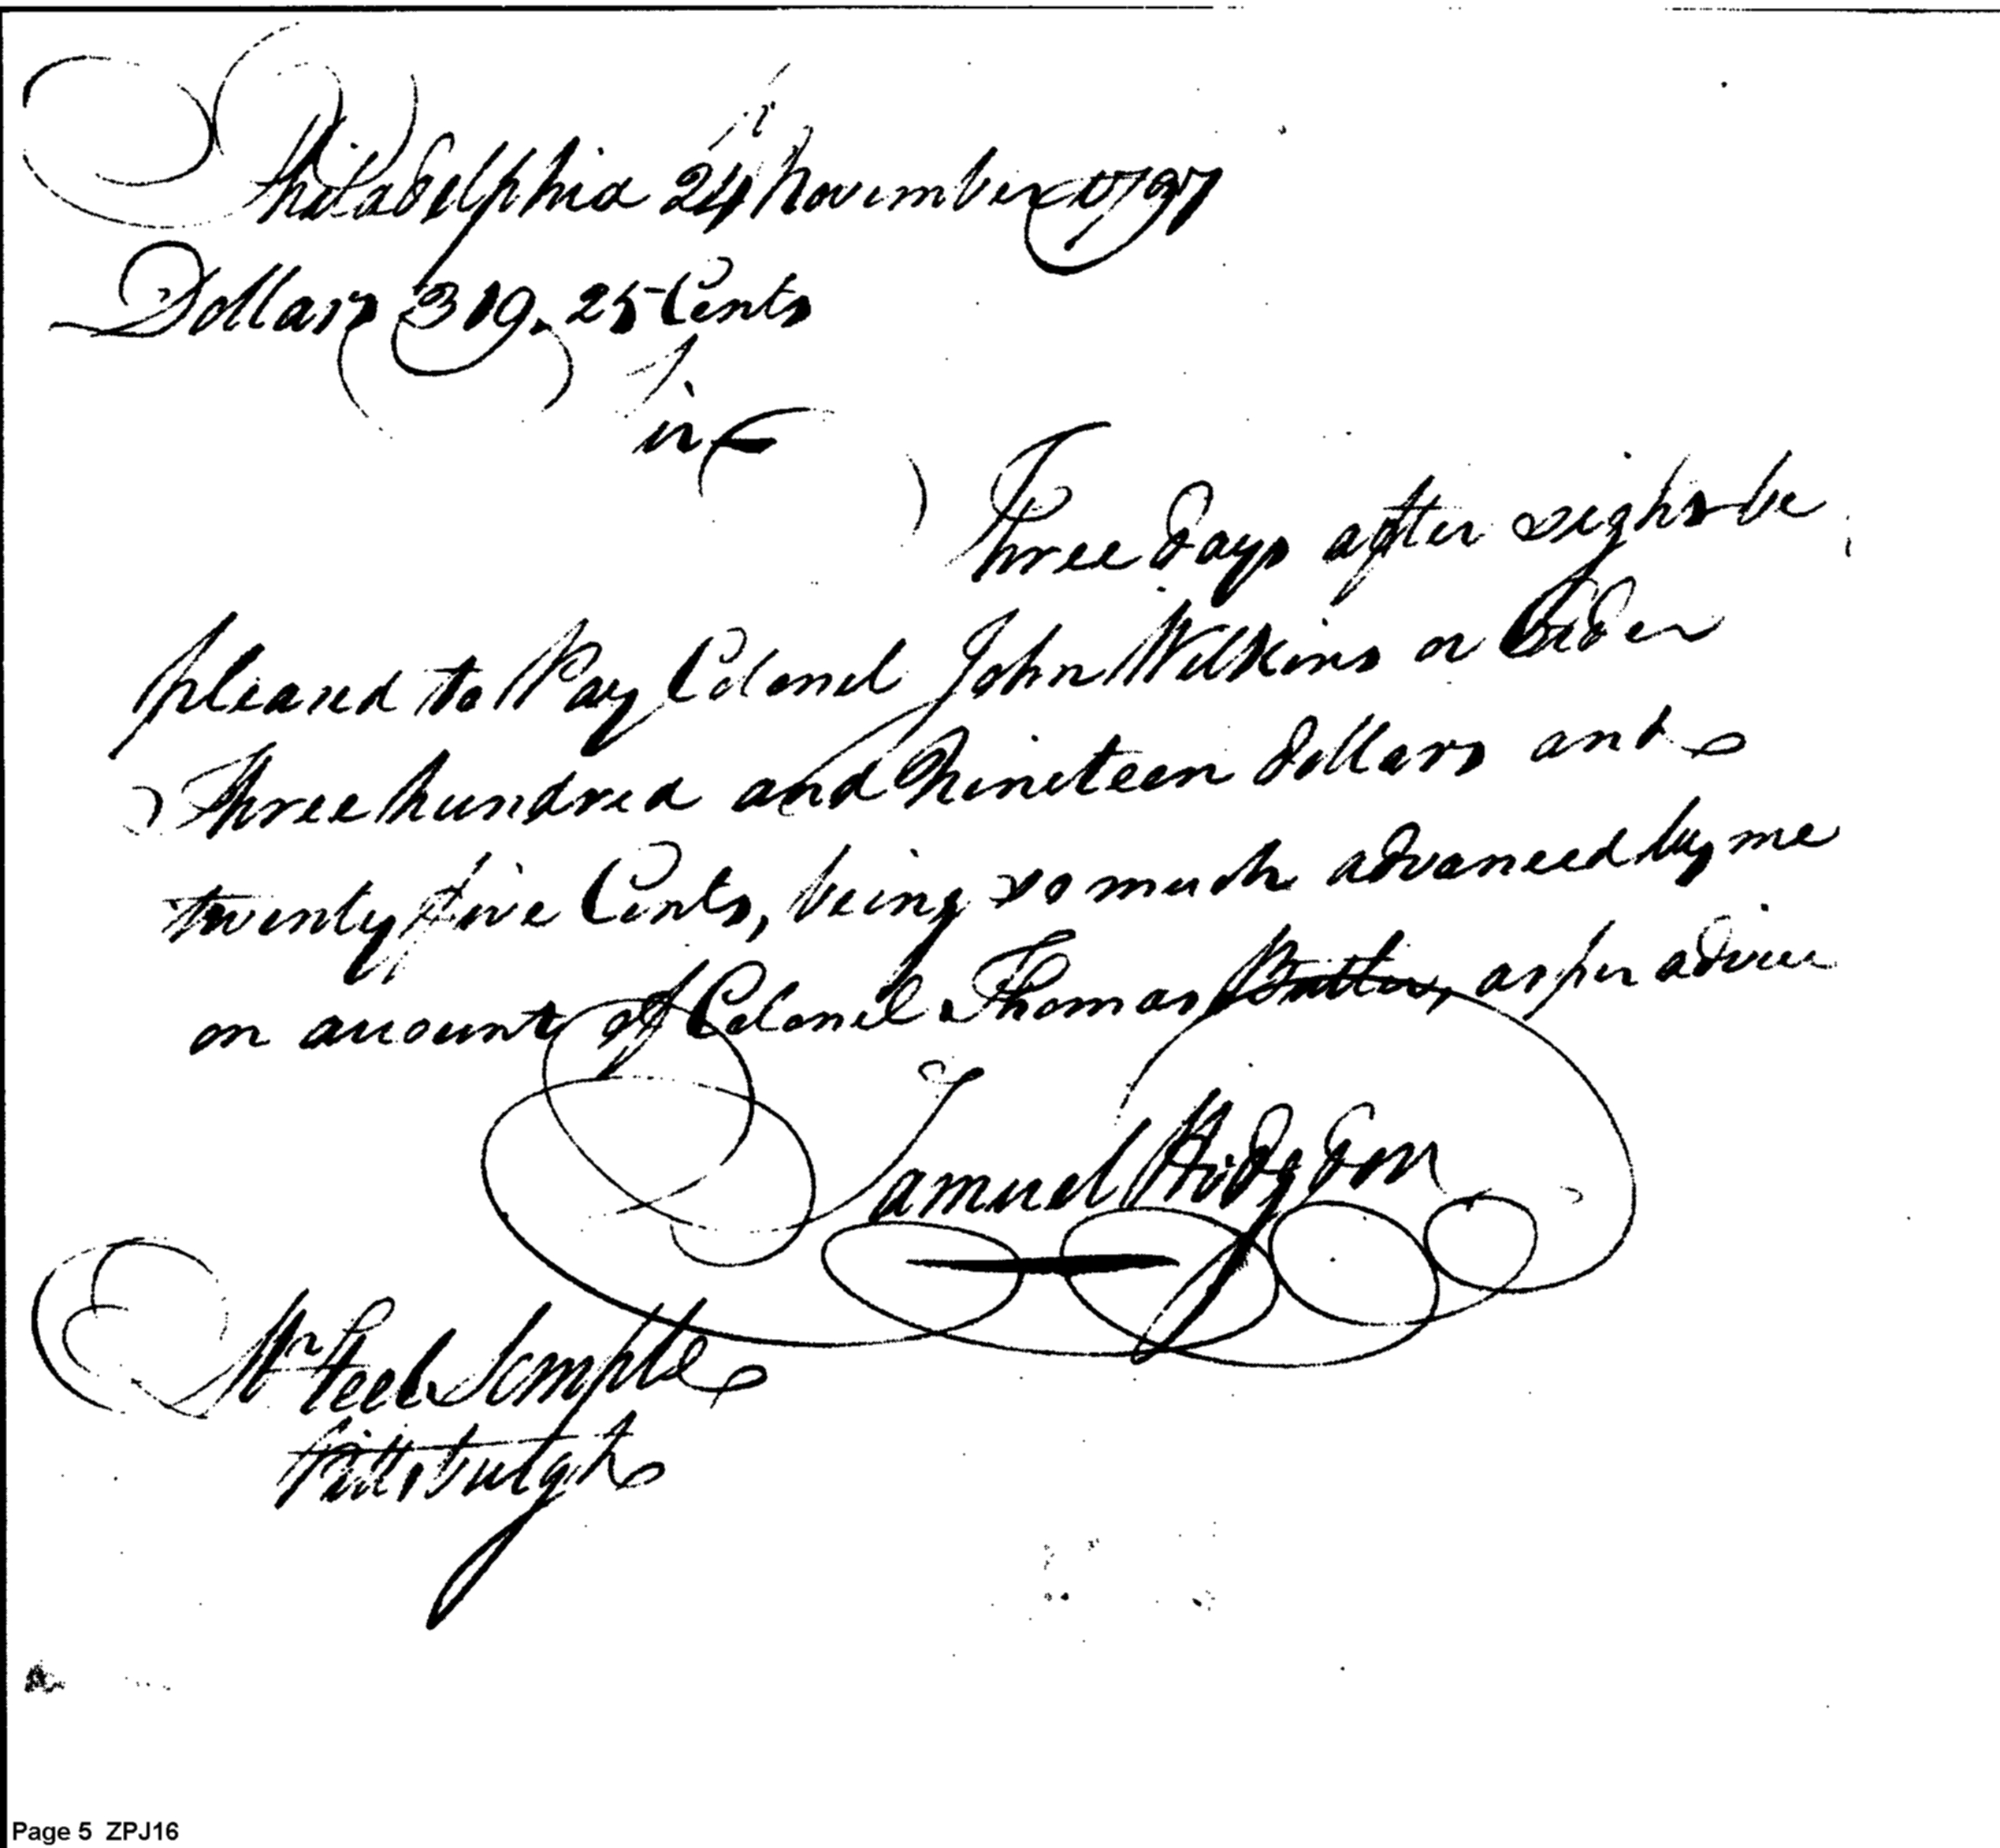 Philadelphia 24 November 1797
Dollars 319. 25 Cents
Sir
Three days after sight be
pleased to Pay Colonel John Wilkins or Order
Three hundred and Nineteen dollars and
twenty five Cents, being so much advanced by me
on account of Colonel Thomas Butler, as per advice
Samuel Hodgdon
Mr Steel Semple
Pittsburgh
Page 5 ZPJ16